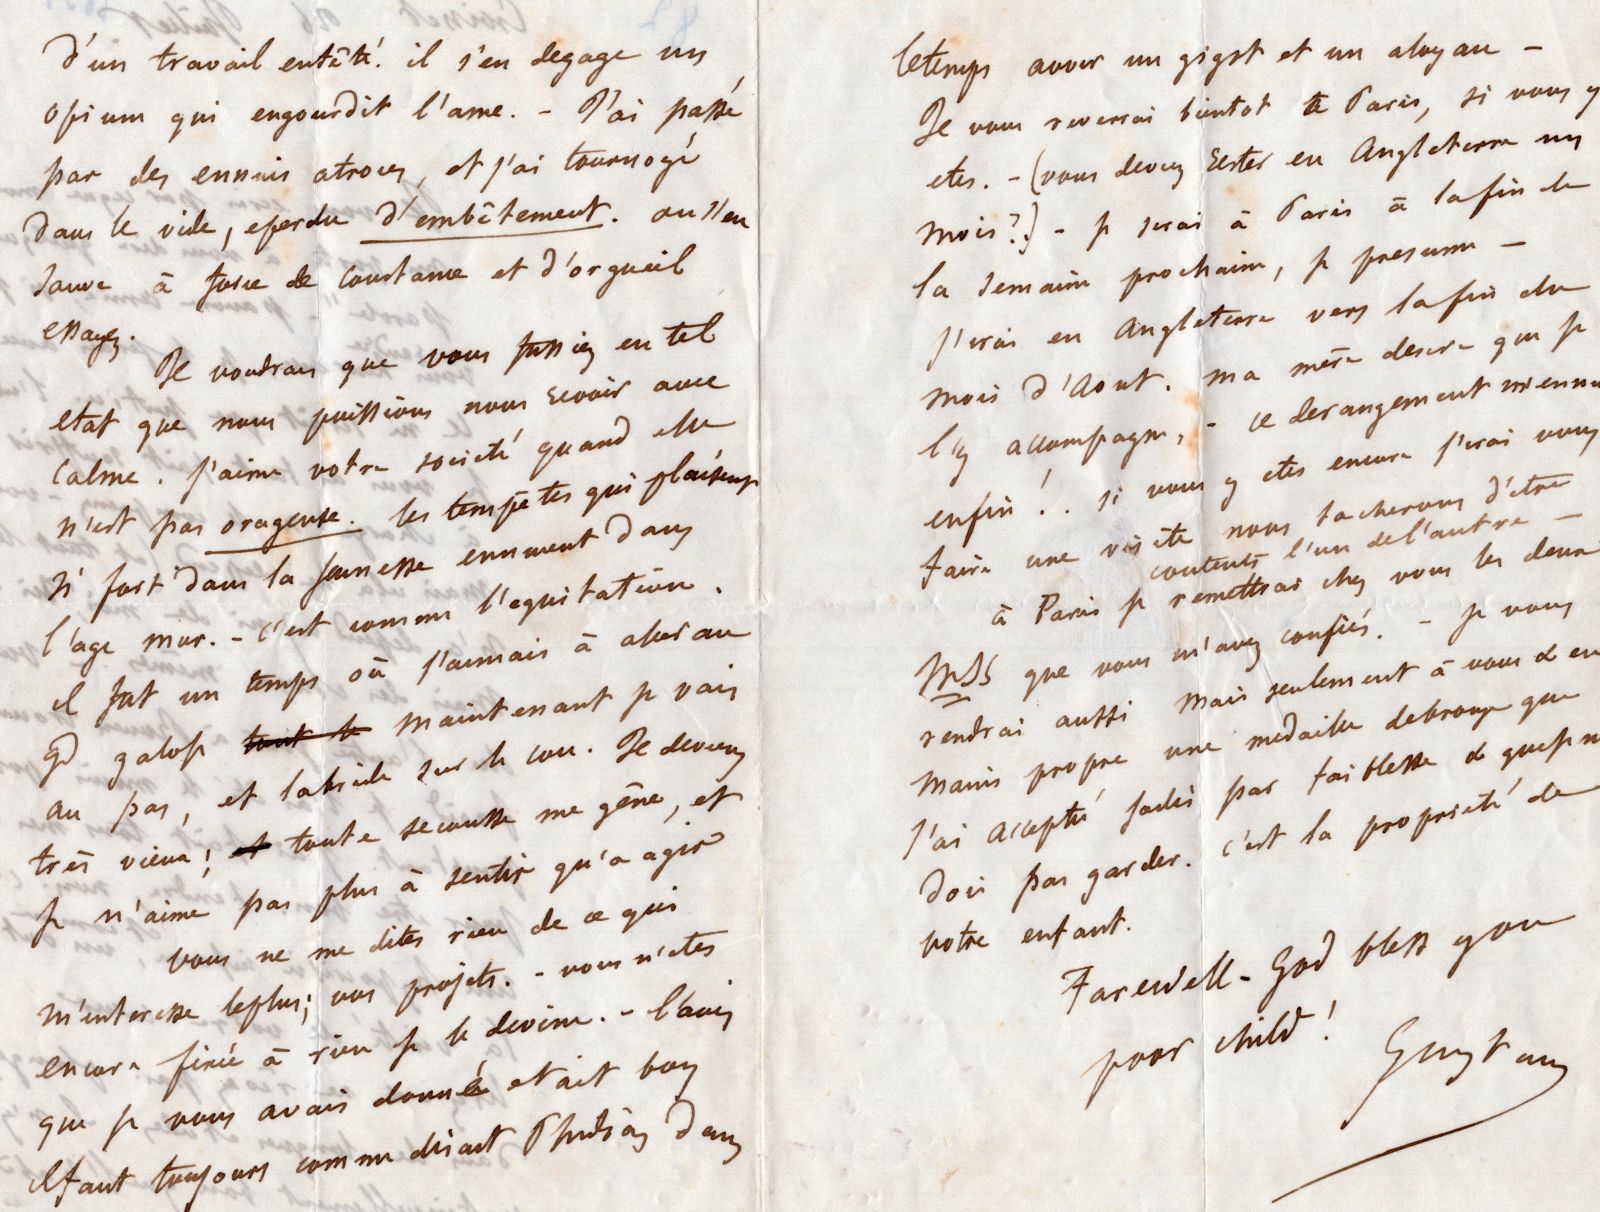 d'un travail entêté. il s'en degage un
opium qui engourdit l'ame. - J'ai passé
par des ennuis atroces, et j'ai tournoyé
dans le vide, eperdu d'embêtement. on s'en
sauve à force de constance et d'orgueil
essayez.
Je voudrais que vous fussiez en tel
etat que nous puissions nous revoir avec
calme. j'aime votre société quand elle
n'est pas orageuse. les tempêtes qui plaisent
si fort dans la jeunesse ennuient dans
l'age mur. - c'est comme l'equitation.
il fut un temps où j'aimais à aller au
gd galop tout le maintenant je vais
au pas, et la bride sur le cou. Je deviens
très vieux; et toute secousse me gêne, et
je n'aime pas plus à sentir qu'a agir
vous ne me dites rien de ce qui
m'interesse le plus; vos projets. - vous n'etes
encore fixée à rien je le devine. - l'avis
que je vous avais donné etait bon
il faut toujours comme disait Phidias dans
letemps avoir un gigot et un aloyau -
Je vous reverrai bientot à Paris, si vous y
etes. - (vous deviez rester en Angleterre un
mois?) - je serai à Paris à la fin de
la semaine prochaine, je presume -
J'irai en Angleterre vers la fin du
mois d'Aout. ma mère desire que je
l'y accompagne, - ce derangement m'ennuie
enfin!. si vous y etes encore j'irai vous
faire une visite nous tacherons d'etre
contents l'un de l'autre -
à Paris je remettrai chez vous les deux
MSS que vous m'avez confiés. - je vous
rendrai aussi mais seulement à vous & en
mains propre une medaille debronze que
j'ai acceptée jadis par faiblesse & que je ne
dois pas garder. c'est la propriété de
votre enfant.
Farewell - God bless you
poor child!
Gustave